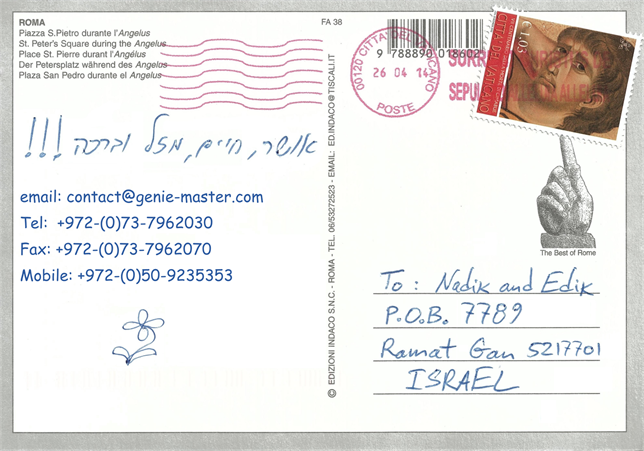 ROMA
Piazza S.Pietro durante l'Angelus
St. Peter's Square during the Angelus
Place St. Pierre durant l'Angelus
Der Petersplatz während des Angelus
Plaza San Pedro durante el Angelus
FA 38
אושר, חיים, מזל וברכה !!!
email: contact@genie-master.com
Tel: +972-(0)73-7962030
Fax: +972-(0)73-7962070
Mobile: +972-(0)50-9235353
© EDIZIONI INDACO S.N.C. - ROMA - TEL. 06/53272523 - EMAIL: ED.INDACO@TISCALI.IT
9 788890 018602
00120 CITTA' DEL VATICANO
26 04 14
POSTE
SEPUL
€1,05
CITTÀ DEL VATICANO
The Best of Rome
To: Nadik and Edik
P.O.B. 7789
Ramat Gan 5217701
ISRAEL